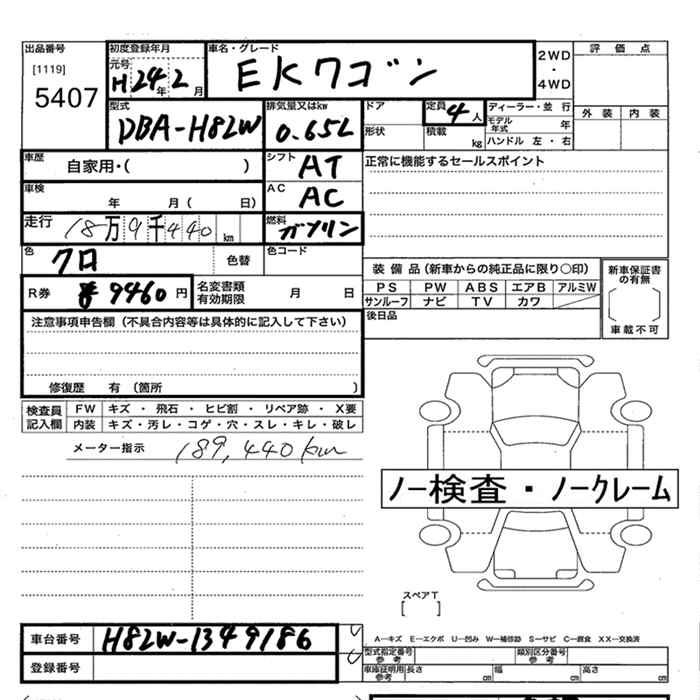 出品番号 [1119] 5407
初度登録年月 元号 H24年2月
車名・グレード EKワゴン
2WD・4WD
評価点
外装 内装
型式 DBA-H82W
排気量又はkw 0.65L
ドア 形状
定員 4人
積載 kg
ディーラー・並行
モデル年式 年
ハンドル 左・右
車歴 自家用・( )
シフト AT
正常に機能するセールスポイント
車検 年 月( 日)
AC AC
走行 18万9千440km
燃料 ガソリン
色 クロ 色替
色コード
装備品(新車からの純正品に限り○印)
新車保証書の有無
PS PW ABS エアB アルミW
サンルーフ ナビ TV カワ
車載不可
R券 ¥9460円
名変書類有効期限 月 日
後日品
注意事項申告欄(不具合内容等は具体的に記入して下さい)
修復歴 有(箇所 )
検査員記入欄
FW キズ・飛石・ヒビ割・リペア跡・X要
内装 キズ・汚レ・コゲ・穴・スレ・キレ・破レ
メーター指示 189,440km
ノー検査・ノークレーム
スペアT
[ ]
車台番号 H82W-1349186
登録番号
A…キズ E…エクボ U…凹み W…補修跡 S…サビ C…腐食 XX…交換済
型式指定番号 参考
類別区分番号 参考
車庫証明用参考 長さ cm 幅 cm 高さ cm